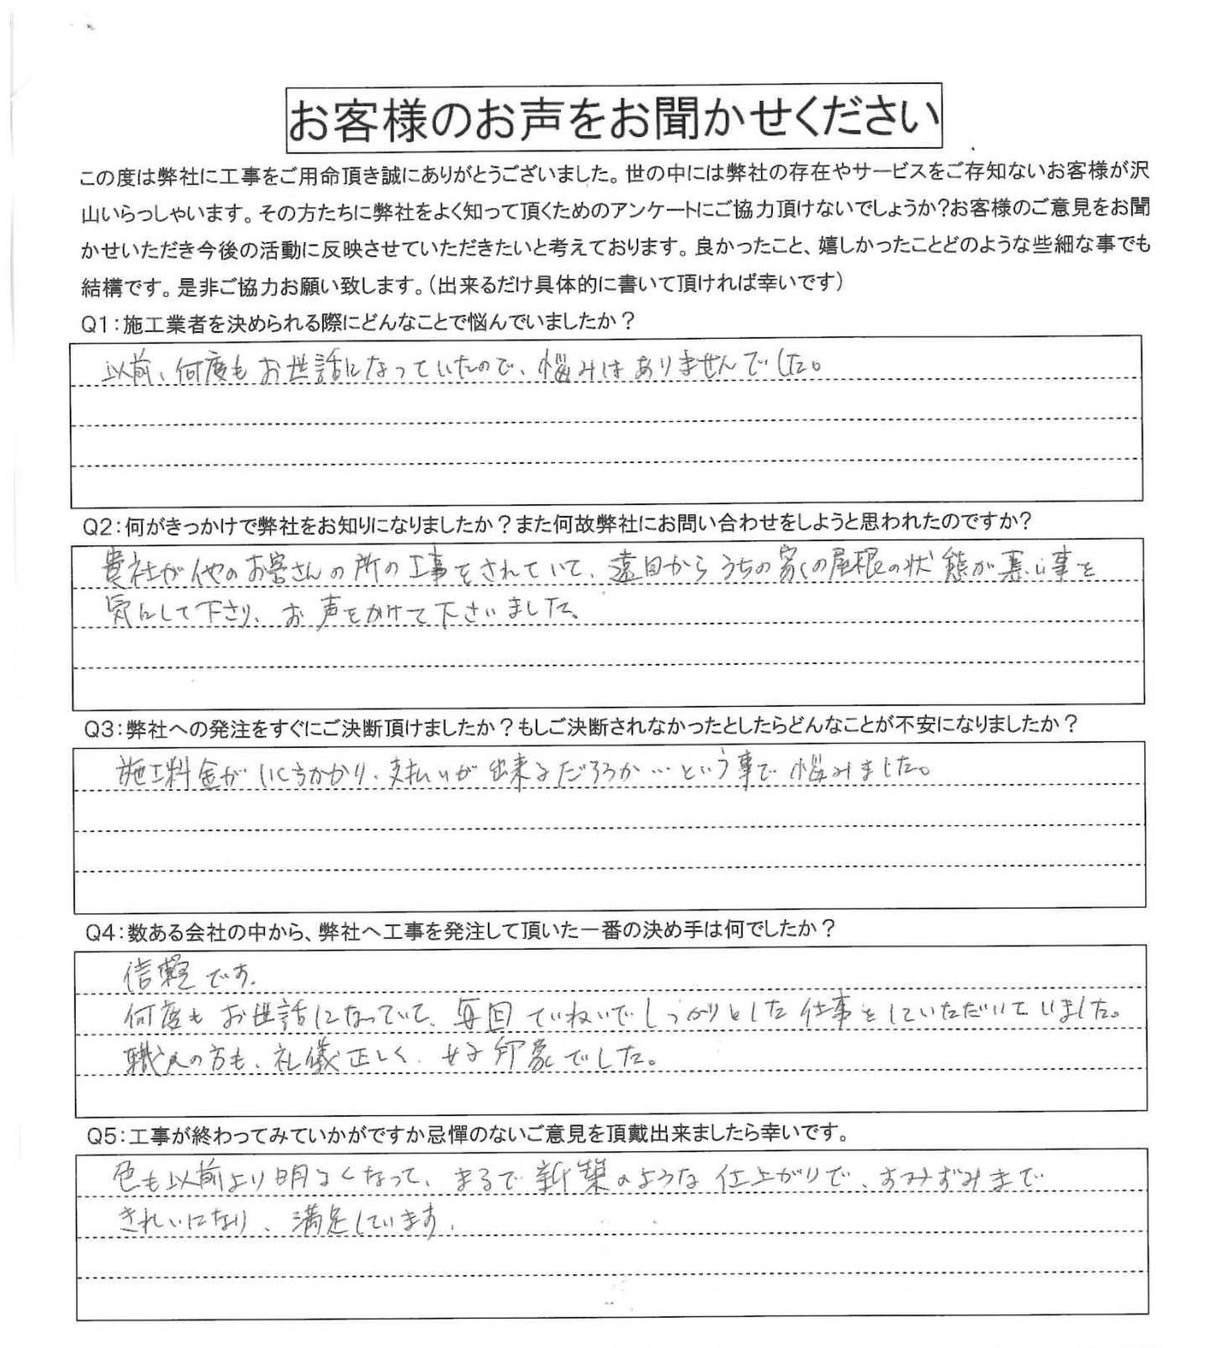 お客様のお声をお聞かせください
この度は弊社に工事をご用命頂き誠にありがとうございました。世の中には弊社の存在やサービスをご存知ないお客様が沢
山いらっしゃいます。その方たちに弊社をよく知って頂くためのアンケートにご協力頂けないでしょうか?お客様のご意見をお聞
かせいただき今後の活動に反映させていただきたいと考えております。良かったこと、嬉しかったことどのような些細な事でも
結構です。是非ご協力お願い致します。(出来るだけ具体的に書いて頂ければ幸いです)
Q1:施工業者を決められる際にどんなことで悩んでいましたか?
以前、何度もお世話になっていたので、悩みはありませんでした。
Q2:何がきっかけで弊社をお知りになりましたか?また何故弊社にお問い合わせをしようと思われたのですか?
貴社が他のお客さんの所の工事をされていて、遠目からうちの家の屋根の状態が悪い事を
気にして下さり、お声をかけて下さいました。
Q3:弊社への発注をすぐにご決断頂けましたか?もしご決断されなかったとしたらどんなことが不安になりましたか?
施工料金がいくらかかり、支払いが出来るだろうか…という事で悩みました。
Q4:数ある会社の中から、弊社へ工事を発注して頂いた一番の決め手は何でしたか?
信頼です。
何度もお世話になっていて、毎回ていねいでしっかりとした仕事をしていただいていました。
職人の方も、礼儀正しく、好印象でした。
Q5:工事が終わってみていかがですか忌憚のないご意見を頂戴出来ましたら幸いです。
色も以前より明るくなって、まるで新築のような仕上がりで、すみずみまで
きれいになり、満足しています。